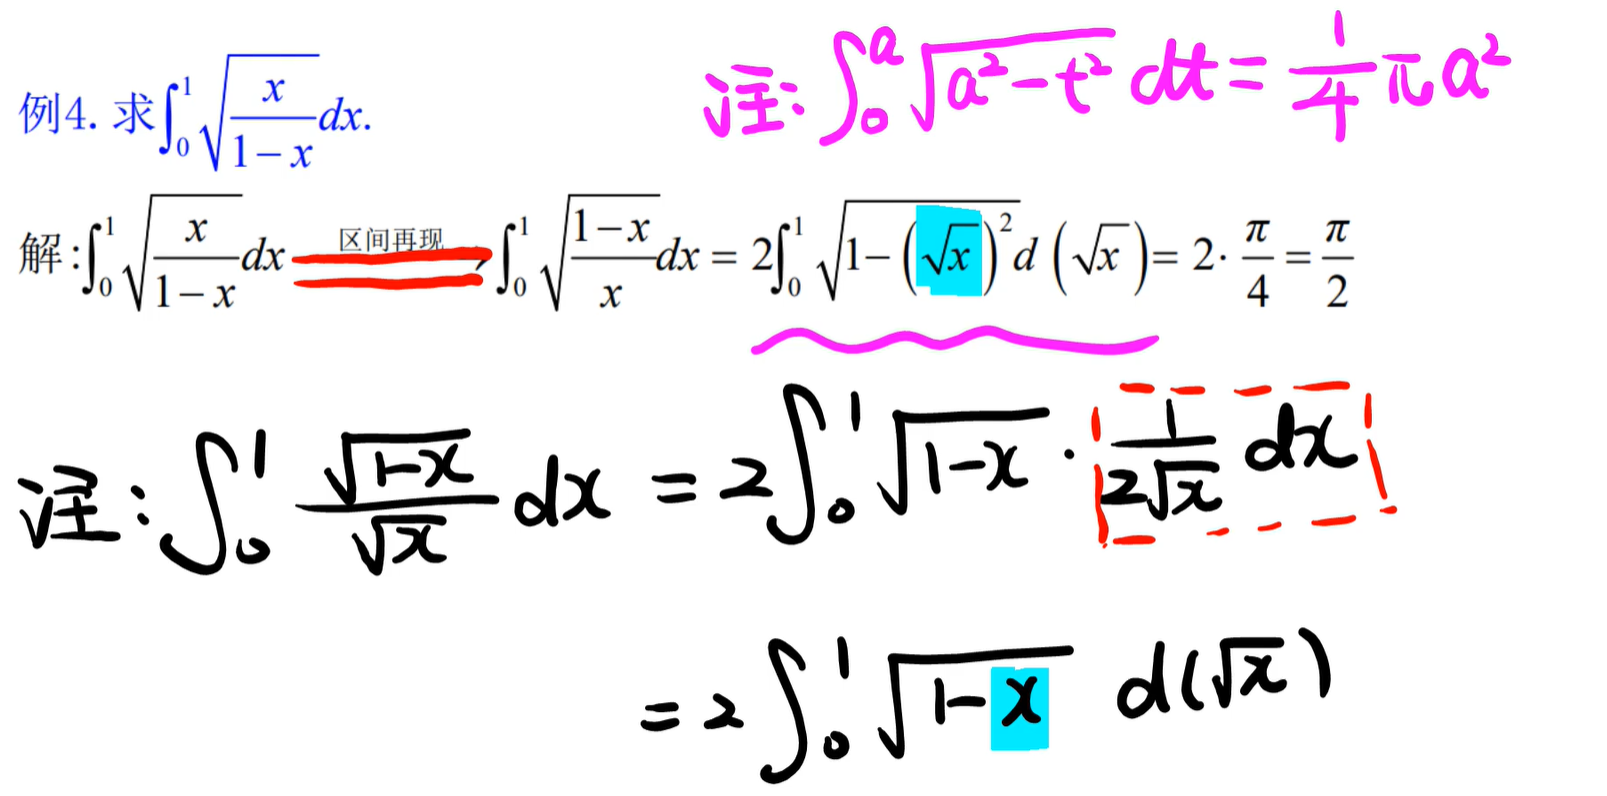 例4. 求∫₀¹ √(x/(1−x)) dx.
注: ∫₀ᵃ √(a²−t²) dt = 1/4 πa²
解:∫₀¹ √(x/(1−x)) dx 区间再现 ∫₀¹ √((1−x)/x) dx = 2∫₀¹ √(1−(√x)²) d(√x) = 2·π/4 = π/2
注: ∫₀¹ √(1−x)/√x dx = 2∫₀¹ √(1−x) · 1/(2√x) dx
= 2∫₀¹ √(1−x) d(√x)